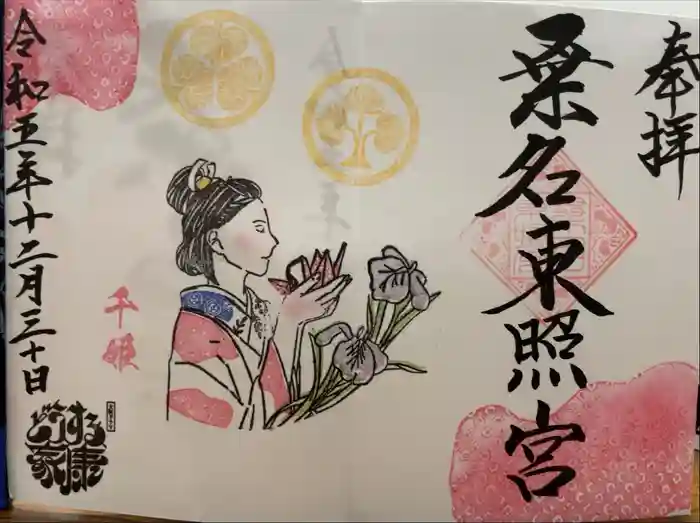 奉拝
桑名東照宮
千姫
令和五年十二月三十日
どうする
家康